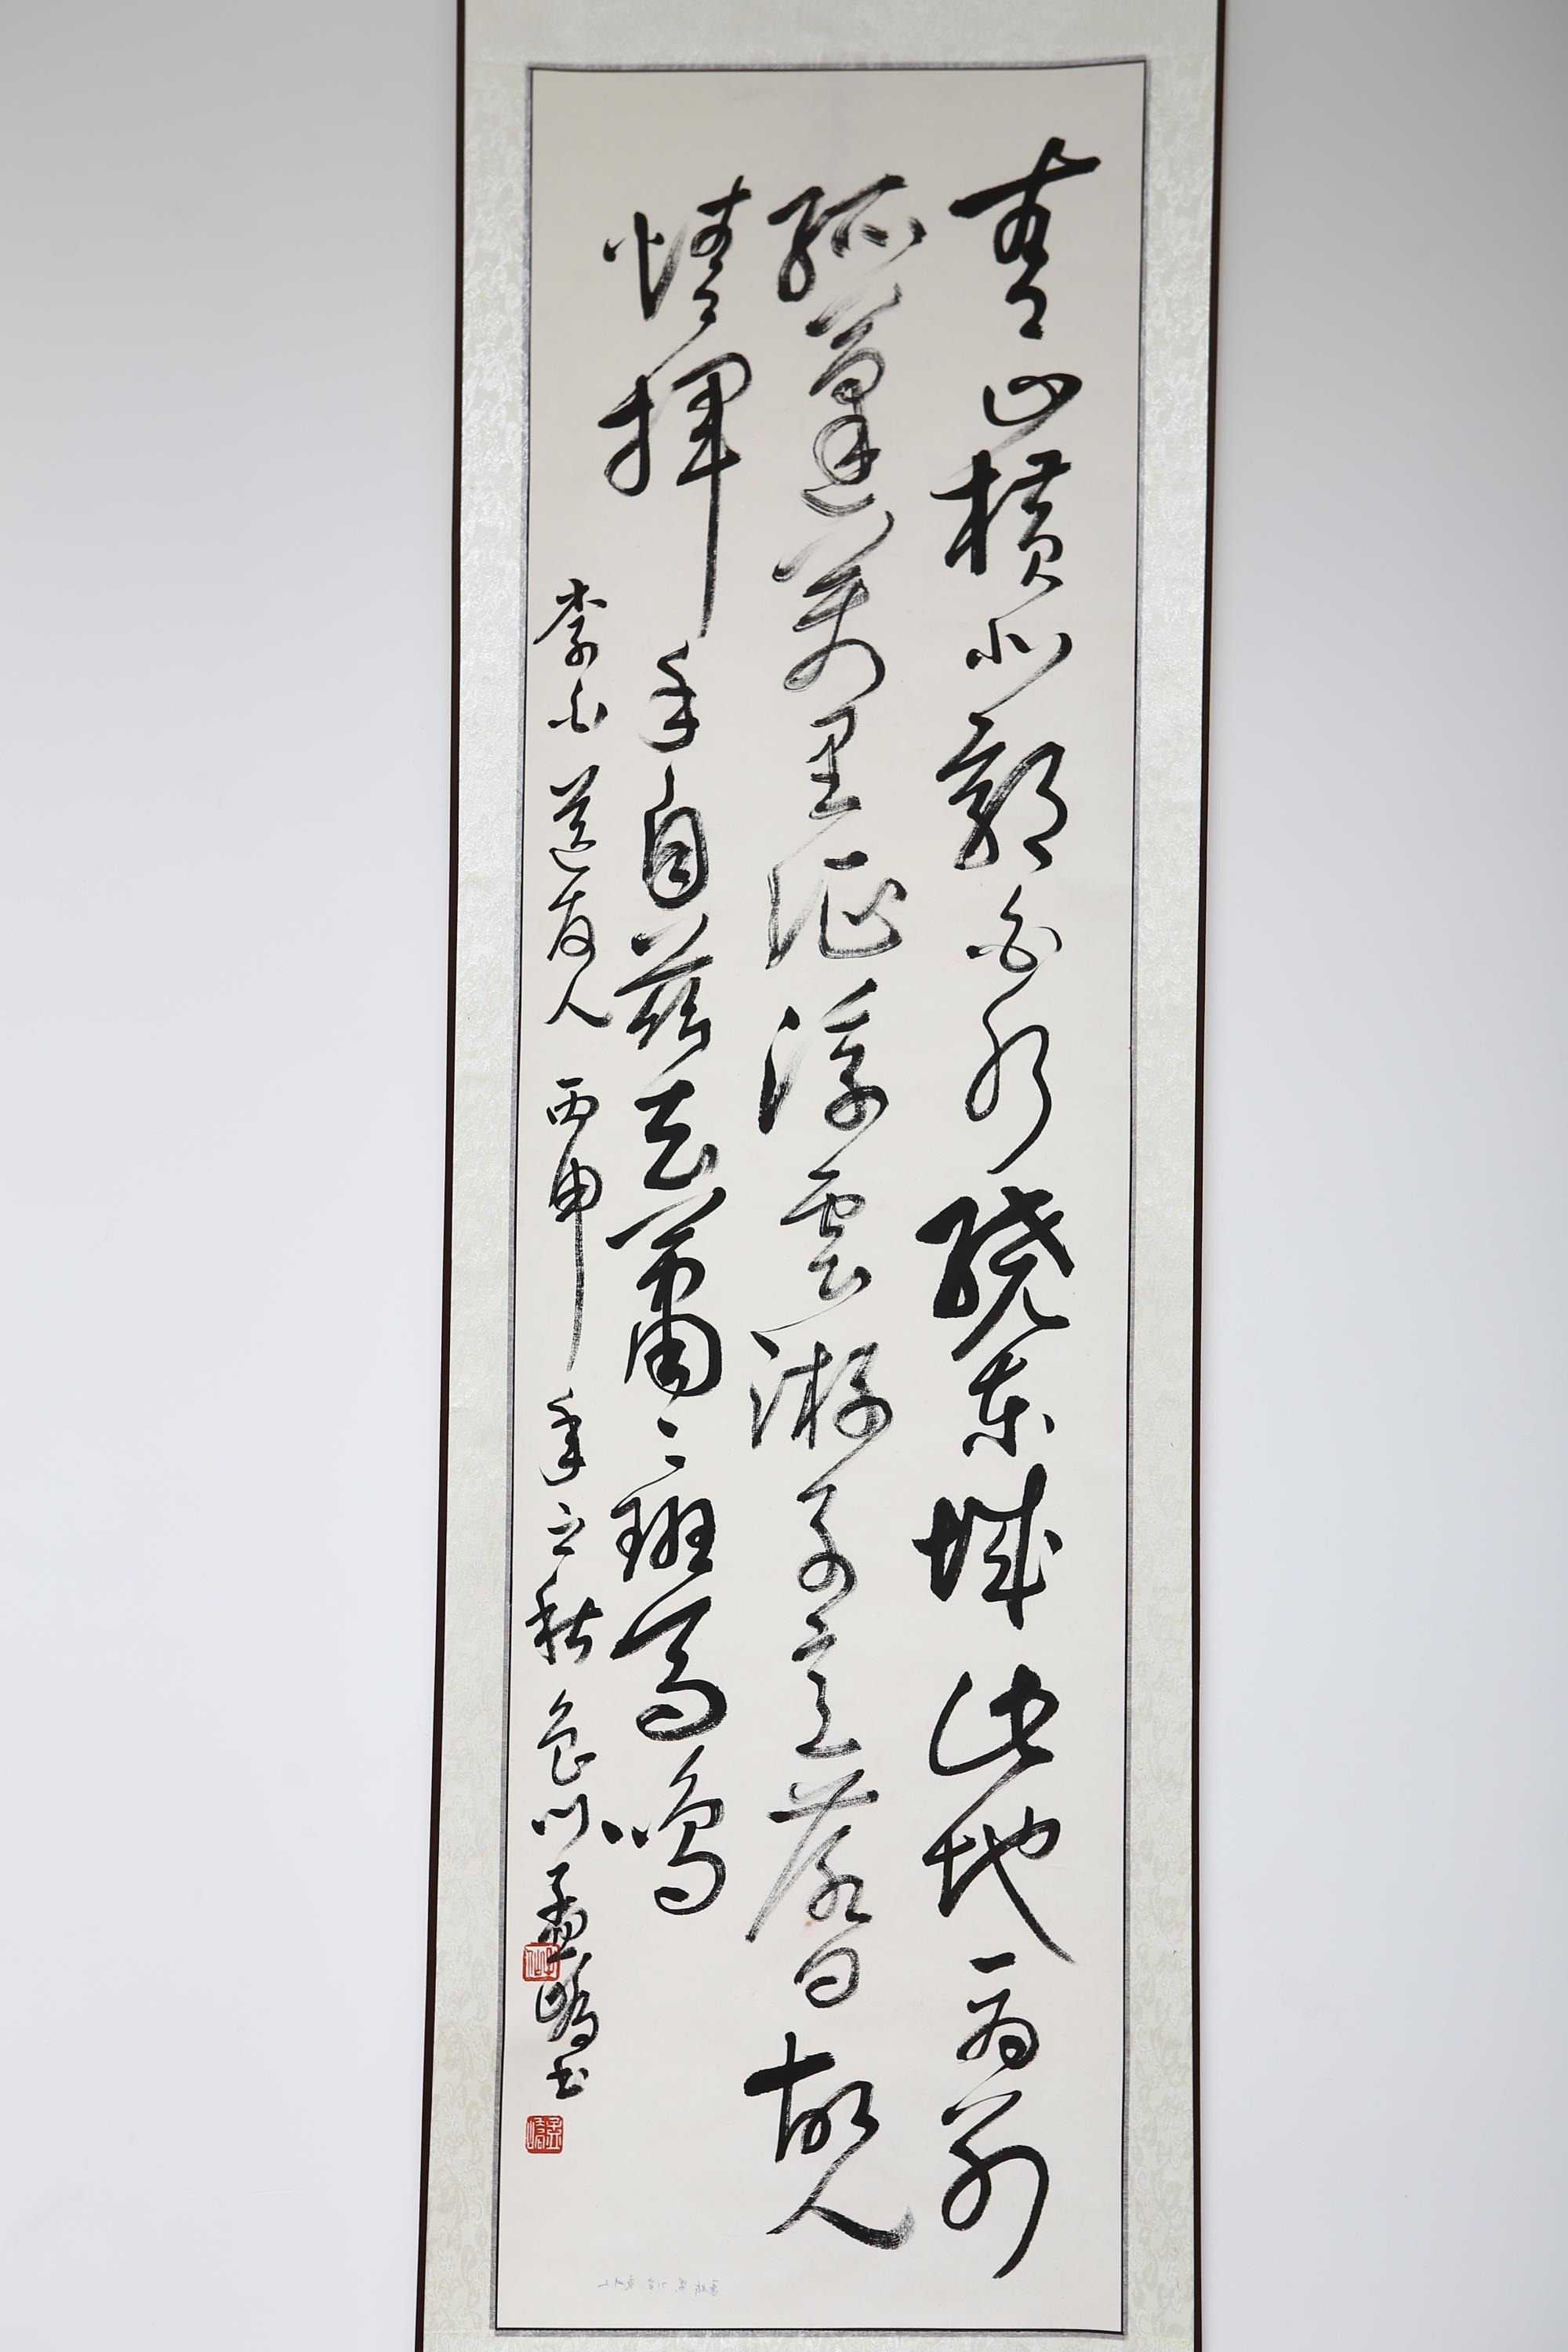 青山横北郭白水绕东城此地一为别
孤蓬万里征浮云游子意落日故人
情挥手自兹去萧々班马鸣
李白送友人 丙申年之秋 孟峤书